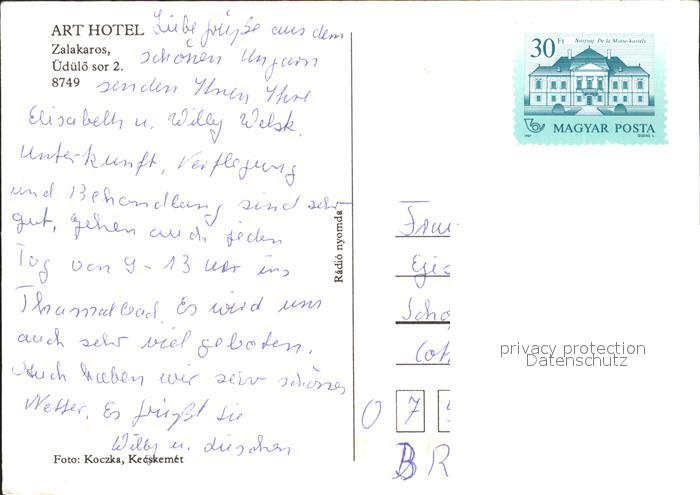 ART HOTEL
Zalakaros,
Üdülő sor 2.
8749
Liebe Grüße aus dem
schönen Ungarn
senden Ihnen Ihre
Elisabeth u. Willy
Unterkunft, Verflegung
und Behandlung sind sehr
gut, gehen auch jeden
Tag von 9-13 Uhr ins
Thermalbad. Es wird uns
auch sehr viel geboten.
Auch haben wir sehr schönes
Wetter. Es grüßt Sie
Willy u. Lieschen
Foto: Koczka, Kecskemét
Rádió nyomda
30 Ft
Noszvaj. De la Motte-kastély
MAGYAR POSTA
Frau
privacy protection
Datenschutz
0 7
BR